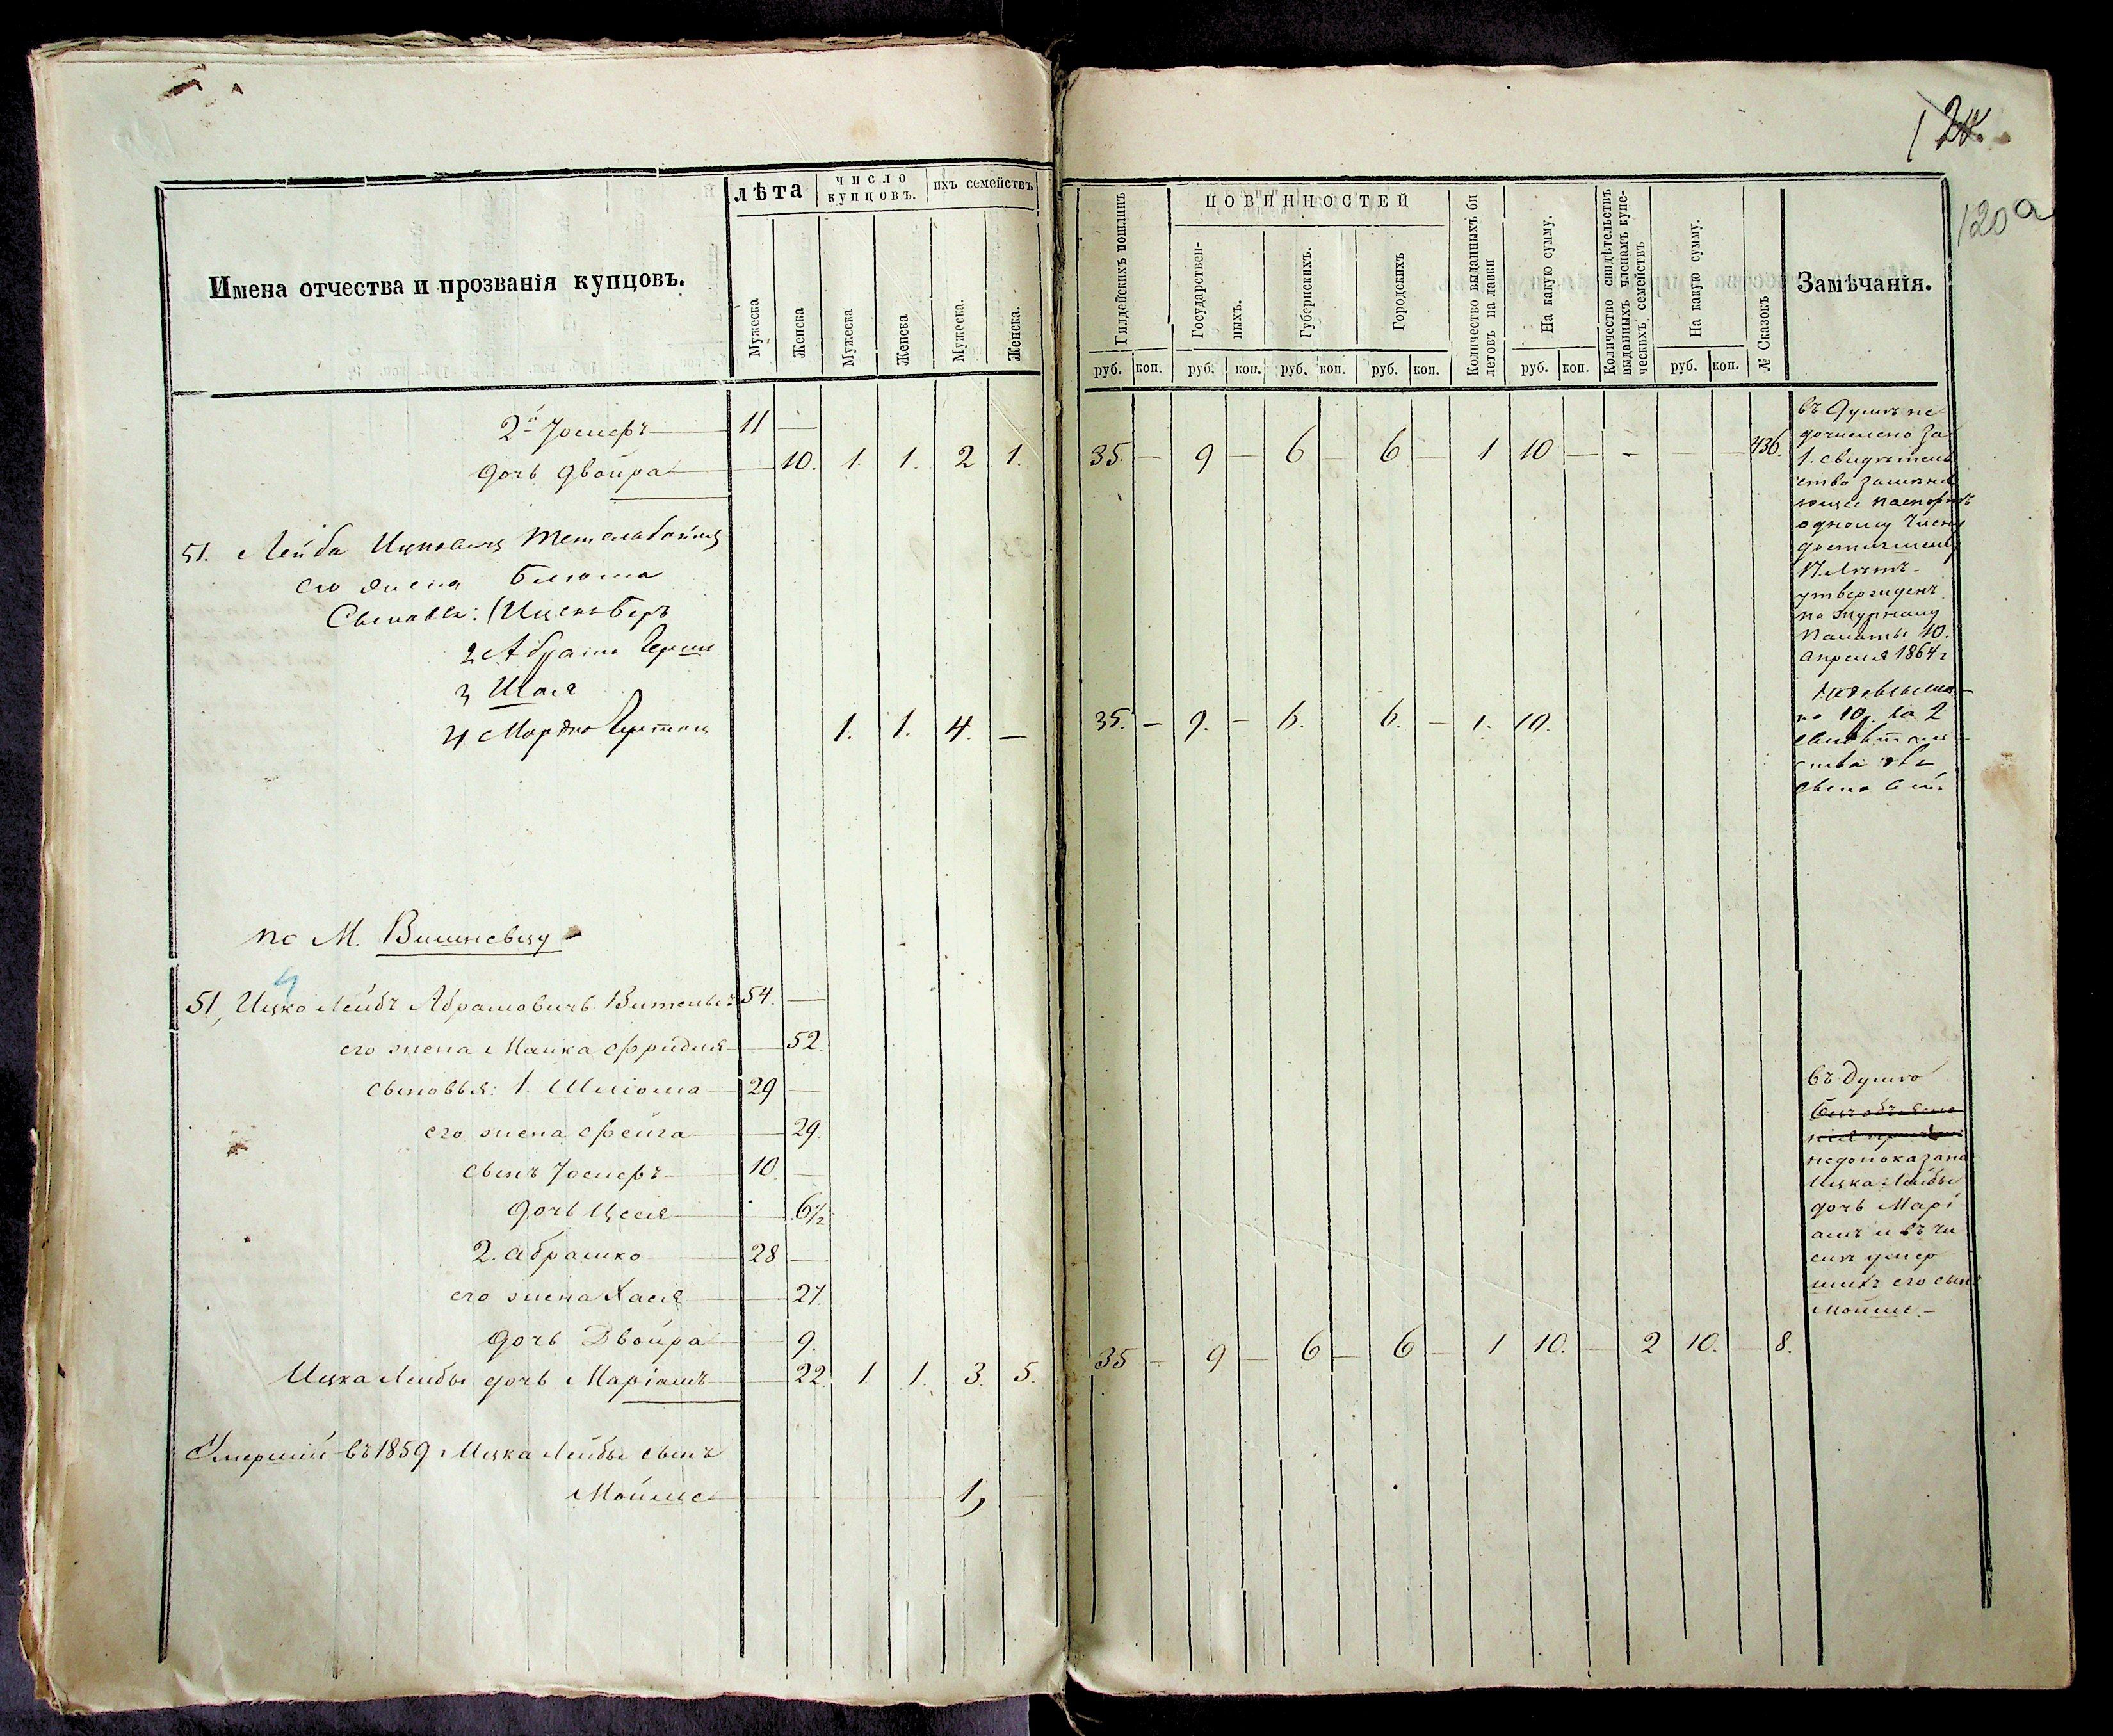 Имена отчества и прозванія купцовъ.
лѣта
число купцовъ.
ихъ семействъ
Мужеска
Женска
Мужеска
Женска
Мужеска.
Женска.
2й Іосифъ 11 —
дочь Двойра — 10. 1. 1. 2 1.
51. Лейба Ицковичъ
его жена
Сыновья: 1
2 Абрамъ Герш
3 Шая
4 Мордко 1. 1. 4. —
по М. Вишневцу
4
51, Ицко Лейбъ Абрамовичъ 54. —
его жена Фрейдля — 52.
сыновья: 1. Шлiома 29 —
его жена Фейга — 29.
сынъ Іосифъ 10. —
дочь Цеся — 6½
2. Абрамко 28 —
его жена Хася — 27.
дочь Двойра — 9.
Ицка Лейбы дочь Маріамъ — 22. 1. 1. 3. 5.
Умершій въ 1859 Ицка Лейбы сынъ
Мойше 1,
12
120а
Гилдейскихъ пошлинъ
ПОВИННОСТЕЙ
Государствен-
ныхъ.
Губернскихъ.
Городскихъ
Количество выданныхъ би
летовъ на лавки
На какую сумму.
Количество свидѣтельствъ
выданныхъ членамъ купе-
ческихъ семействъ
На какую сумму.
№ Сказокъ
Замѣчанія.
руб. коп. руб. коп. руб. коп. руб. коп. руб. коп. руб. коп.
35. — 9 — 6 — 6 — 1 10 — - — — 436.
въ Думѣ не
дочислено за
1. свидѣтель
ство замѣня
ющее паспортъ
одному члену
достигшему
17. лѣтъ —
утвержденъ
по журналу
Палаты 10.
Апрѣля 1864 г
35. — 9. — 6. 6. — 1. 10.
10р. за 2
35 — 9 — 6 — 6 — 1 10. — 2 10. — 8.
въ Думѣ
недопоказана
Ицка Лейбы
дочь Марі
амъ и въ чи
слѣ умер
шихъ его сынъ
Мойше —